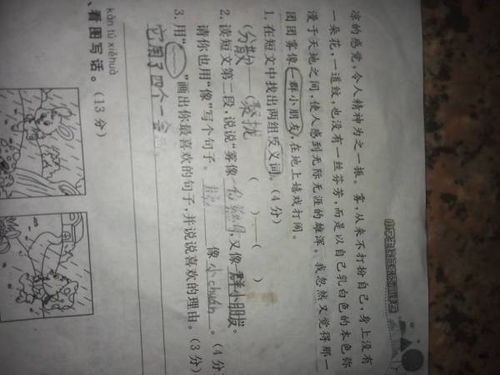 凉的感觉,令人精神为之一振。雾,从来不打扮自己,身上没有
一朵花,一道纹,也没有一丝芬芳,而是以自己乳白色的本色弥
漫于天地之间,使人感到无际无涯的雄浑。我忽然又觉得那一
团团雾像一群小朋友,在地上嬉戏打闹。
1. 在短文中找出两组反义词。(4分)
(分散)—(聚拢) ( )—( )
2. 读短文第二段,说说“雾像 又像群小朋友。
请你也用“像”写个句子。 像小chuán。(4分
3. 用“——”画出你最喜欢的句子,并说说喜欢的理由。(3分)
它用了四个一
kàn tú xiě huà
、看图写话。(13分)